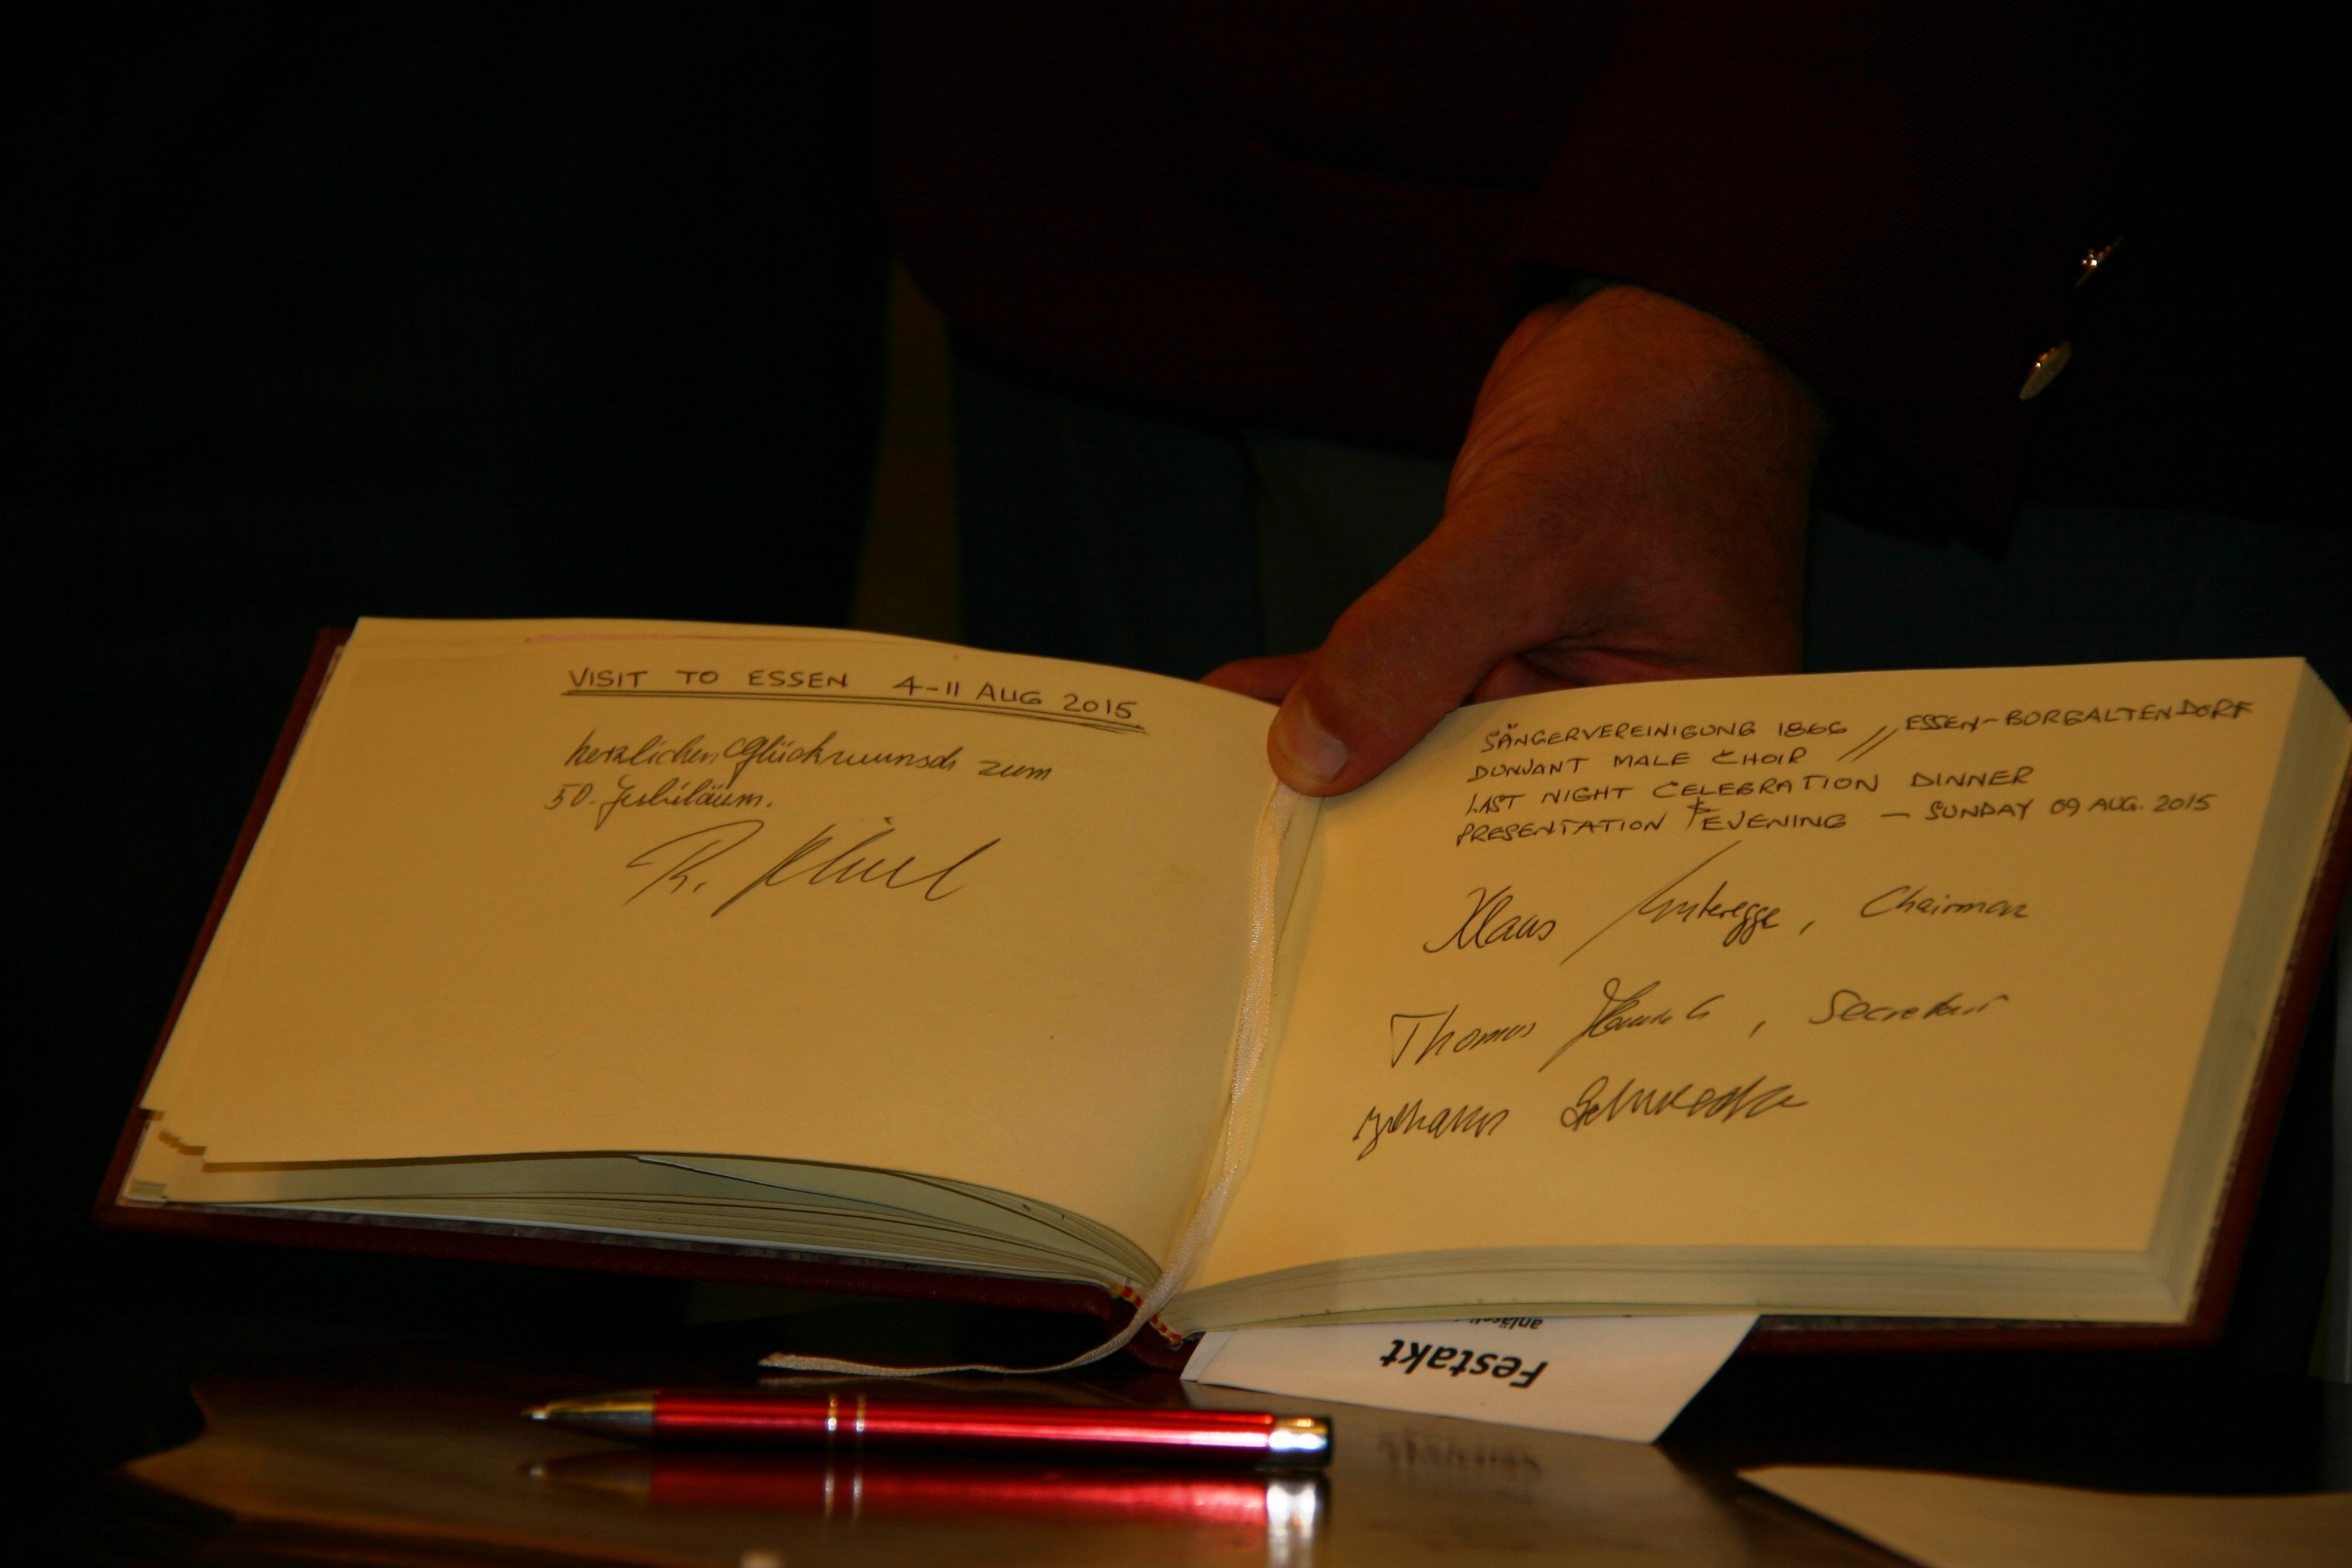 VISIT TO ESSEN 4-11 AUG 2015
herzlichen Glückwunsch zum
50. Jubiläum.
R.
SÄNGERVEREINIGUNG 1866 // ESSEN-BURGALTENDORF
DUNVANT MALE CHOIR
LAST NIGHT CELEBRATION DINNER
PRESENTATION & EVENING — SUNDAY 09 AUG. 2015
Klaus , Chairman
Thomas , Secretair
Johann
Festakt